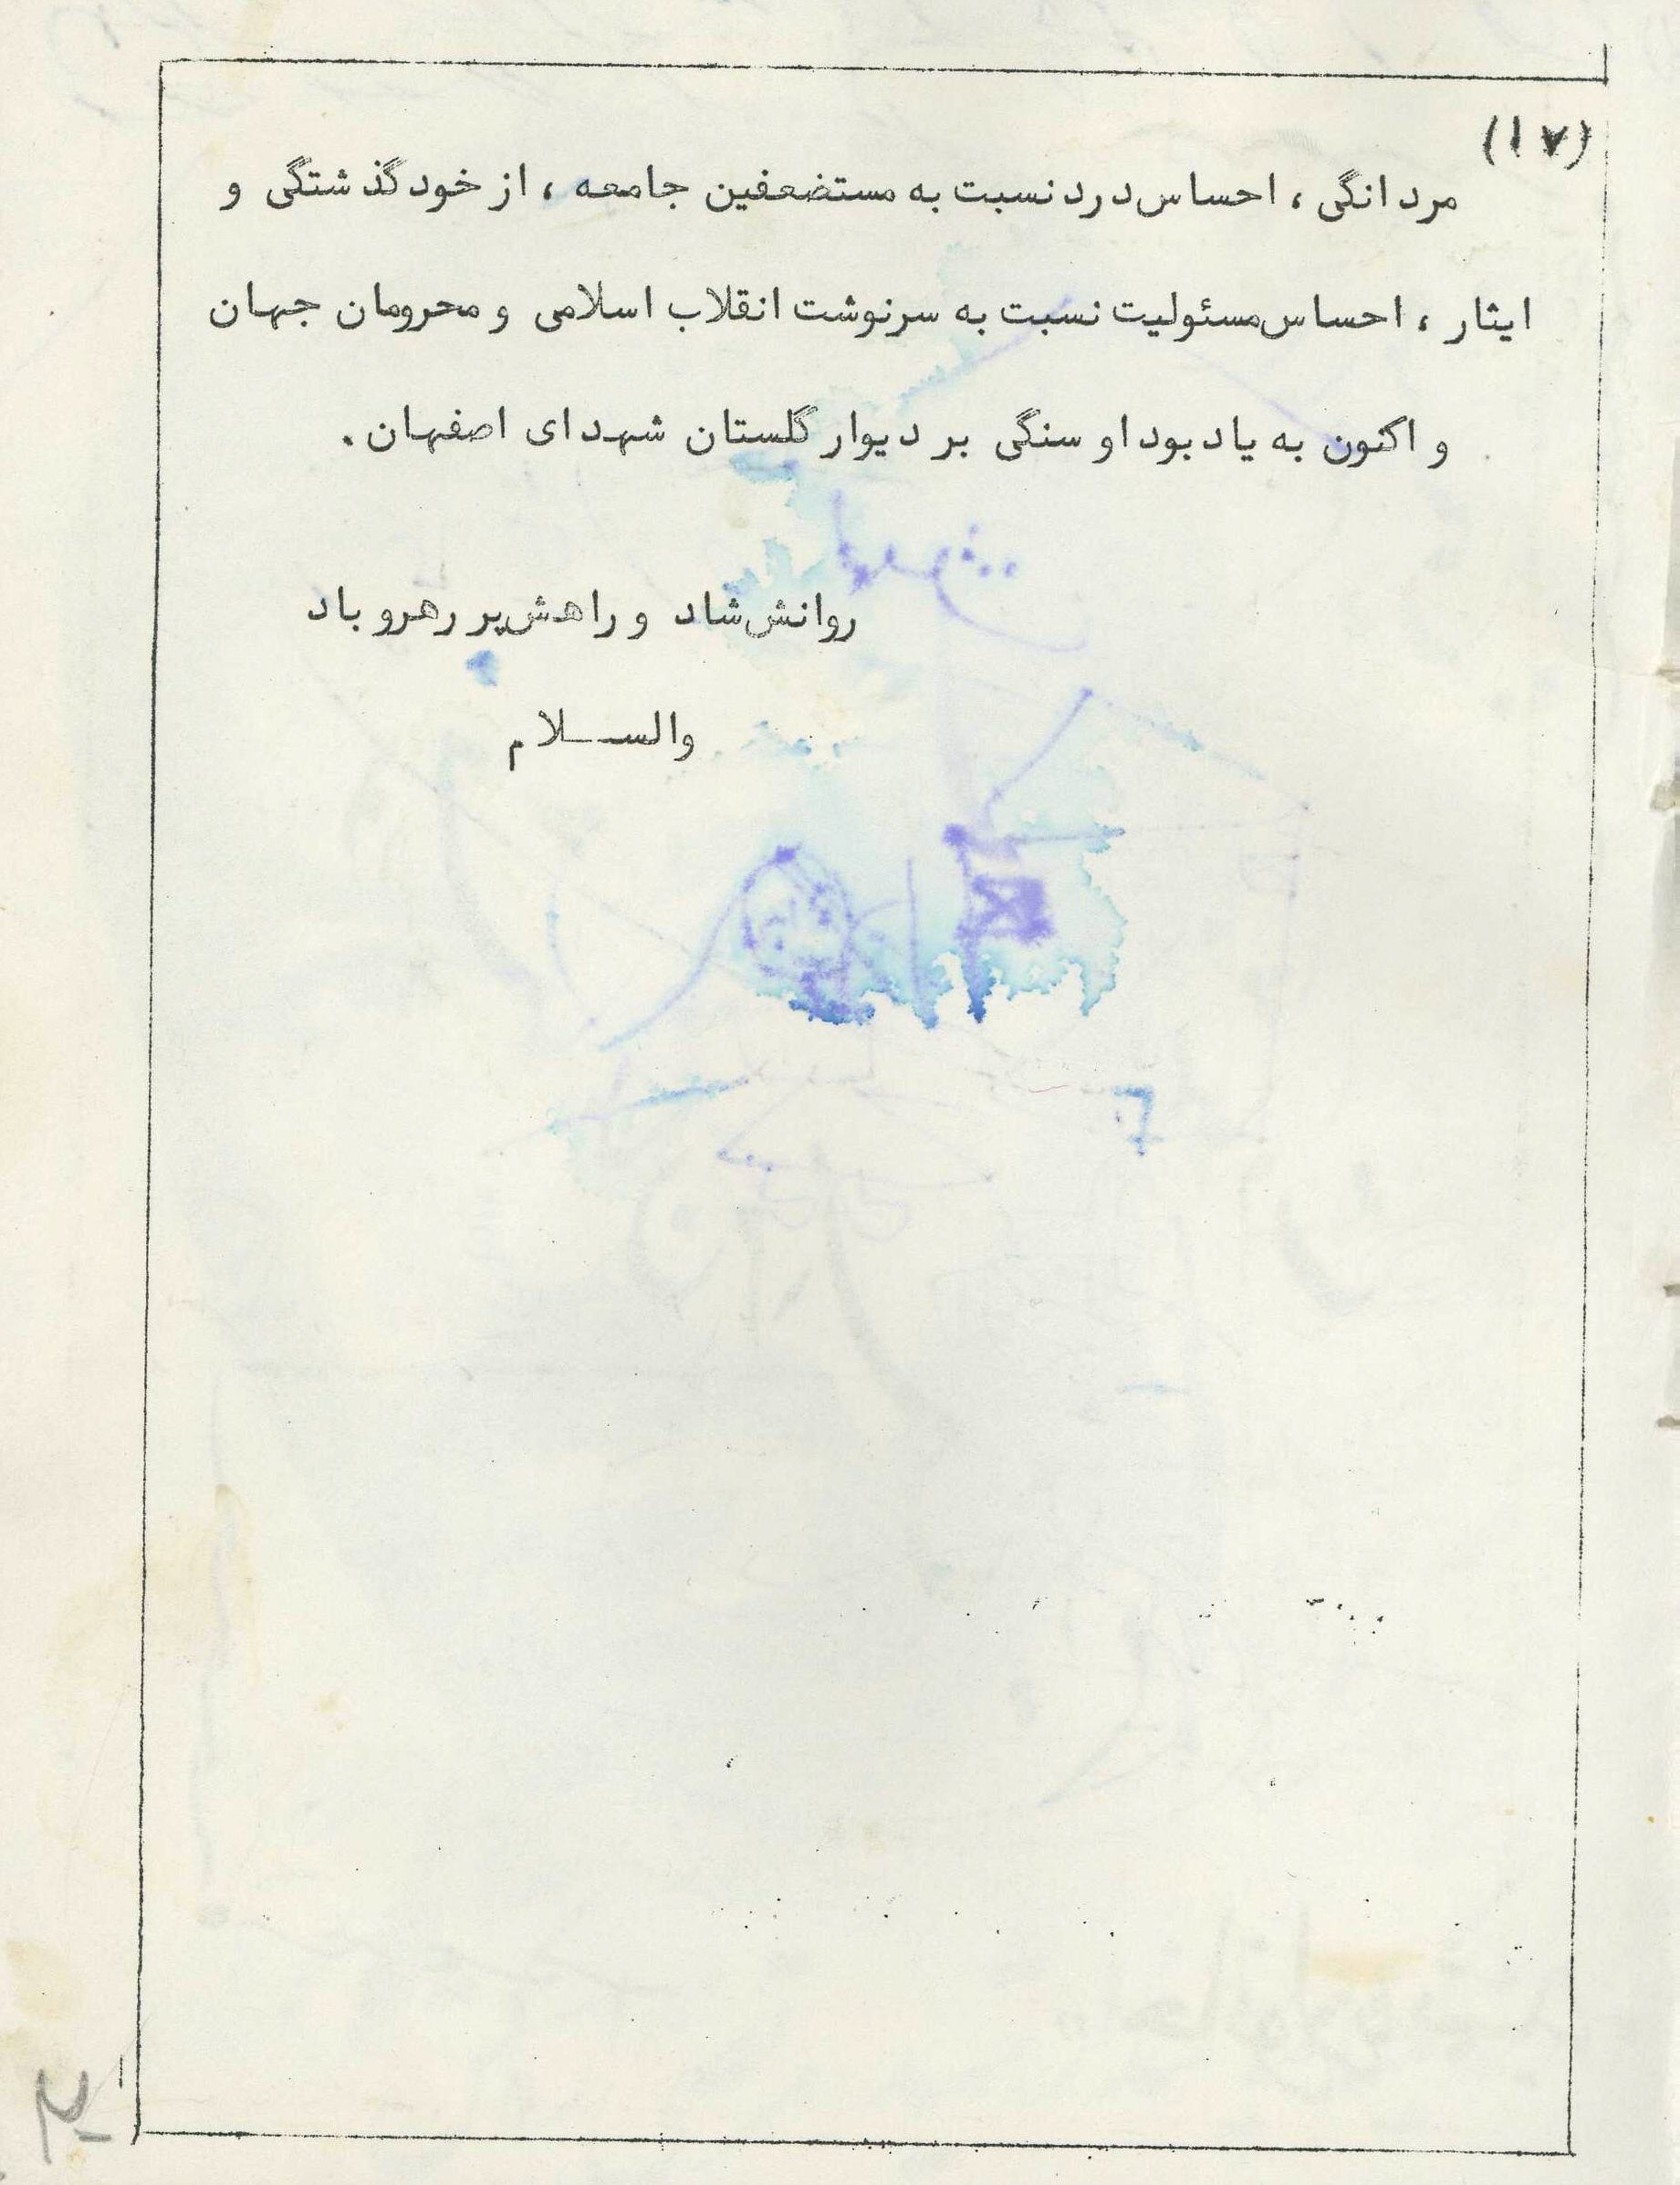 (۱۷)
مردانگی ، احساس درد نسبت به مستضعفین جامعه ، از خود گذشتگی و
ایثار ، احساس مسئولیت نسبت به سرنوشت انقلاب اسلامی و محرومان جهان
و اکنون به یاد بود او سنگی بر دیوار گلستان شهدای اصفهان .
روانش شاد و راهش پر رهرو باد
والســلام